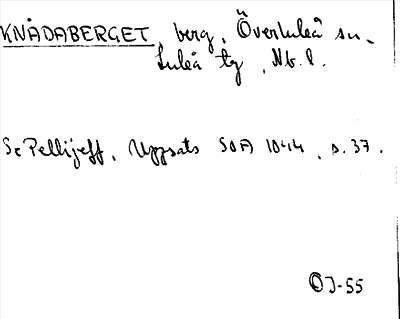 KNÅDABERGET, berg, Överluleå sn.
Luleå tg, Nb. l.
Se Pellijeff, Uppsats SOFI 1044, s. 37.
OJ-55